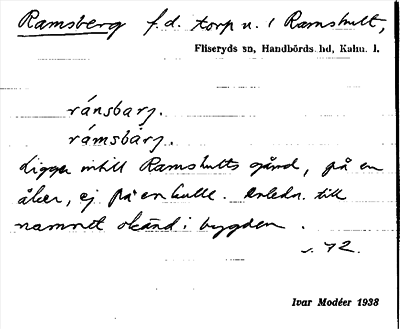 Ramsberg f.d. torp u. 1 Ramshult,
Fliseryds sn, Handbörds hd, Kalm. l.
ránsbarj.
rámsbàrj.
Ligger intill Ramshults gård, på en
åker, ej på en kulle. Anledn. till
namnet okänd i bygden.
s. 72.
Ivar Modéer 1938